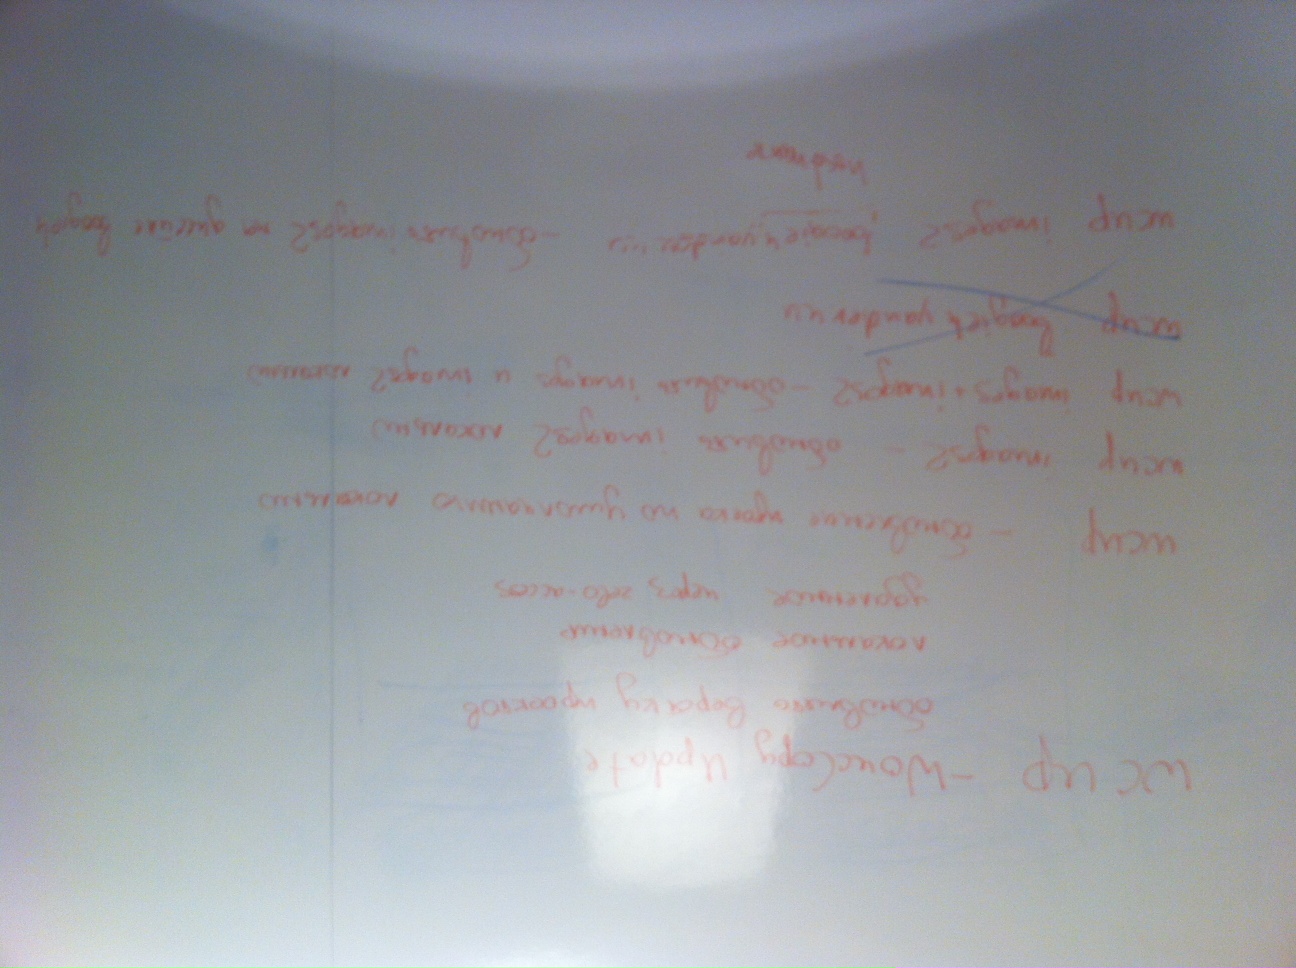 wcup - WorcCopy Update
обновлять версию проектов
локальное обновление
удаленное через zelo-access
wcup - обновление проекта по умолчанию локально
wcup images2 - обновить images2 локально
wcup images+images2 - обновить images и images2 локально
wcup boogieh yandex ru
wcup images2 boogieh.yandex.ru - обновить images2 на boogieh
hostname